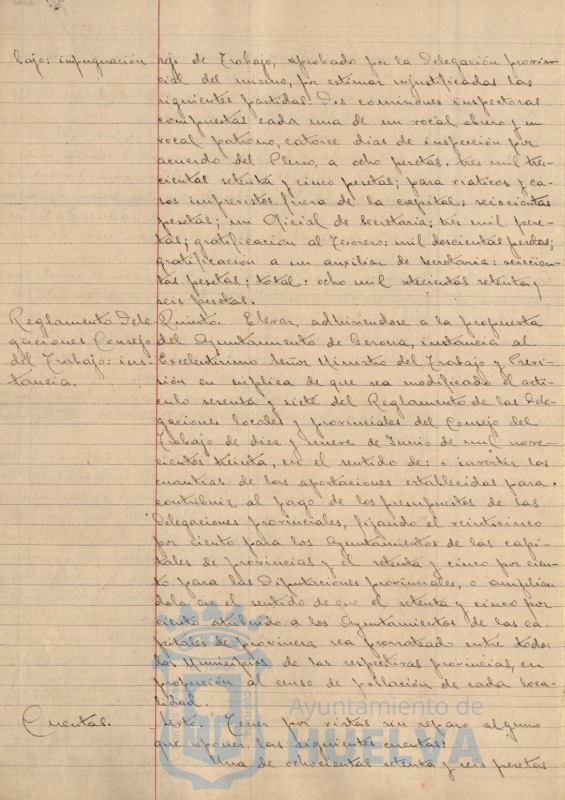 bajo: impugnación
sejo de Trabajo, aprobado por la Delegación provin-
cial del mismo, por estimar injustificadas las
siguientes partidas: Dos comisiones inspectoras
compuestas cada una de un vocal obrero y un
vocal patrono, catorce dias de inspección por
acuerdo del Pleno, a ocho pesetas. tres mil tres-
cientas setenta y cinco pesetas; para viaticos y ca-
sos imprevistos fuera de la capital; seiscientas
pesetas; un Oficial de Secretaria; tres mil pese-
tas; gratificación al Tesorero: mil doscientas pesetas;
gratificación a un auxiliar de secretaria: seiscien-
tas pesetas; total. ocho mil setecientas setenta y
seis pesetas.
Reglamento Dele-
gaciones Consejo
del Trabajo: ins-
tancia.
Quinto. Elevar, adhiriendose a la propuesta
del Ayuntamiento de Gerona, instancia al
Excelentisimo Señor Ministro del Trabajo y Previ-
sión en suplica de que sea modificado el arti-
culo sesenta y siete del Reglamento de las Dele-
gaciones locales y provinciales del Consejo del
Trabajo de diez y nueve de Junio de mil nove-
cientos treinta, en el sentido de: o invertir las
cuantias de las aportaciones establecidas para
contribuir al pago de los presupuestos de las
Delegaciones provinciales, fijando el veinticinco
por ciento para los Ayuntamientos de las capi-
tales de provincias y el setenta y cinco por cien-
to para las Diputaciones provinciales, o amplian-
dola en el sentido de que el setenta y cinco por
ciento atribuido a los Ayuntamientos de las ca-
pitales de provincia sea prorrateado entre todos
los Municipios de las respectivas provincias, en
proporción al censo de población de cada loca-
lidad.
Cuentas.
Sexto. Tener por vistas sin reparo alguno
que oponer, las siguientes cuentas:
Una de ochocientas setenta y seis pesetas
Ayuntamiento de
HUELVA